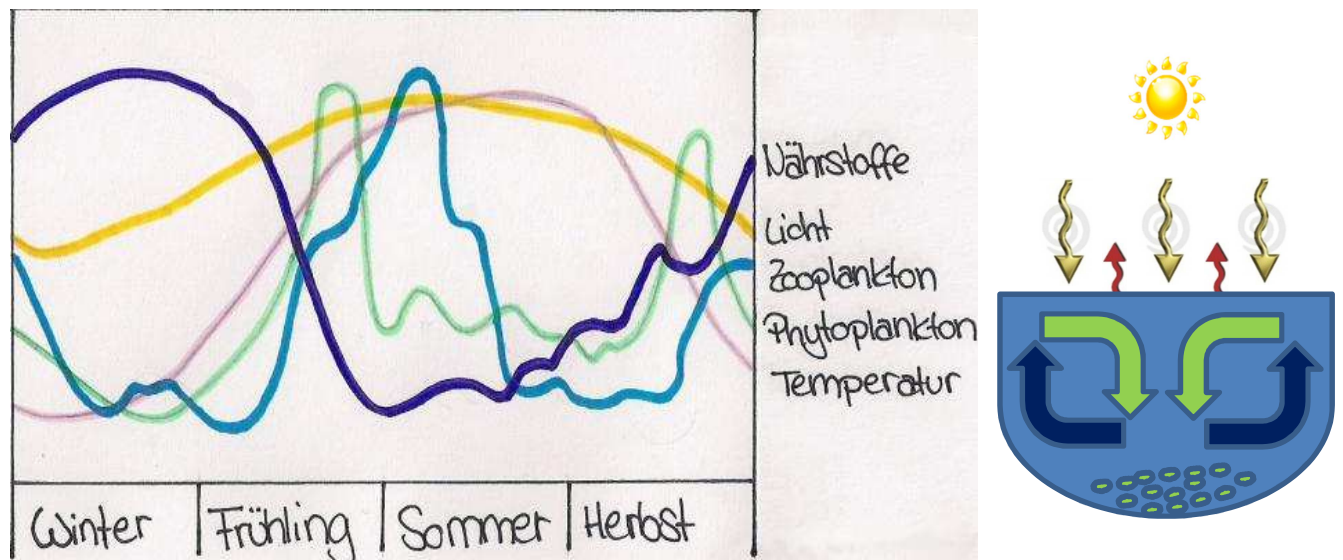 Nährstoffe
Licht
Zooplankton
Phytoplankton
Temperatur
Winter
Frühling
Sommer
Herbst